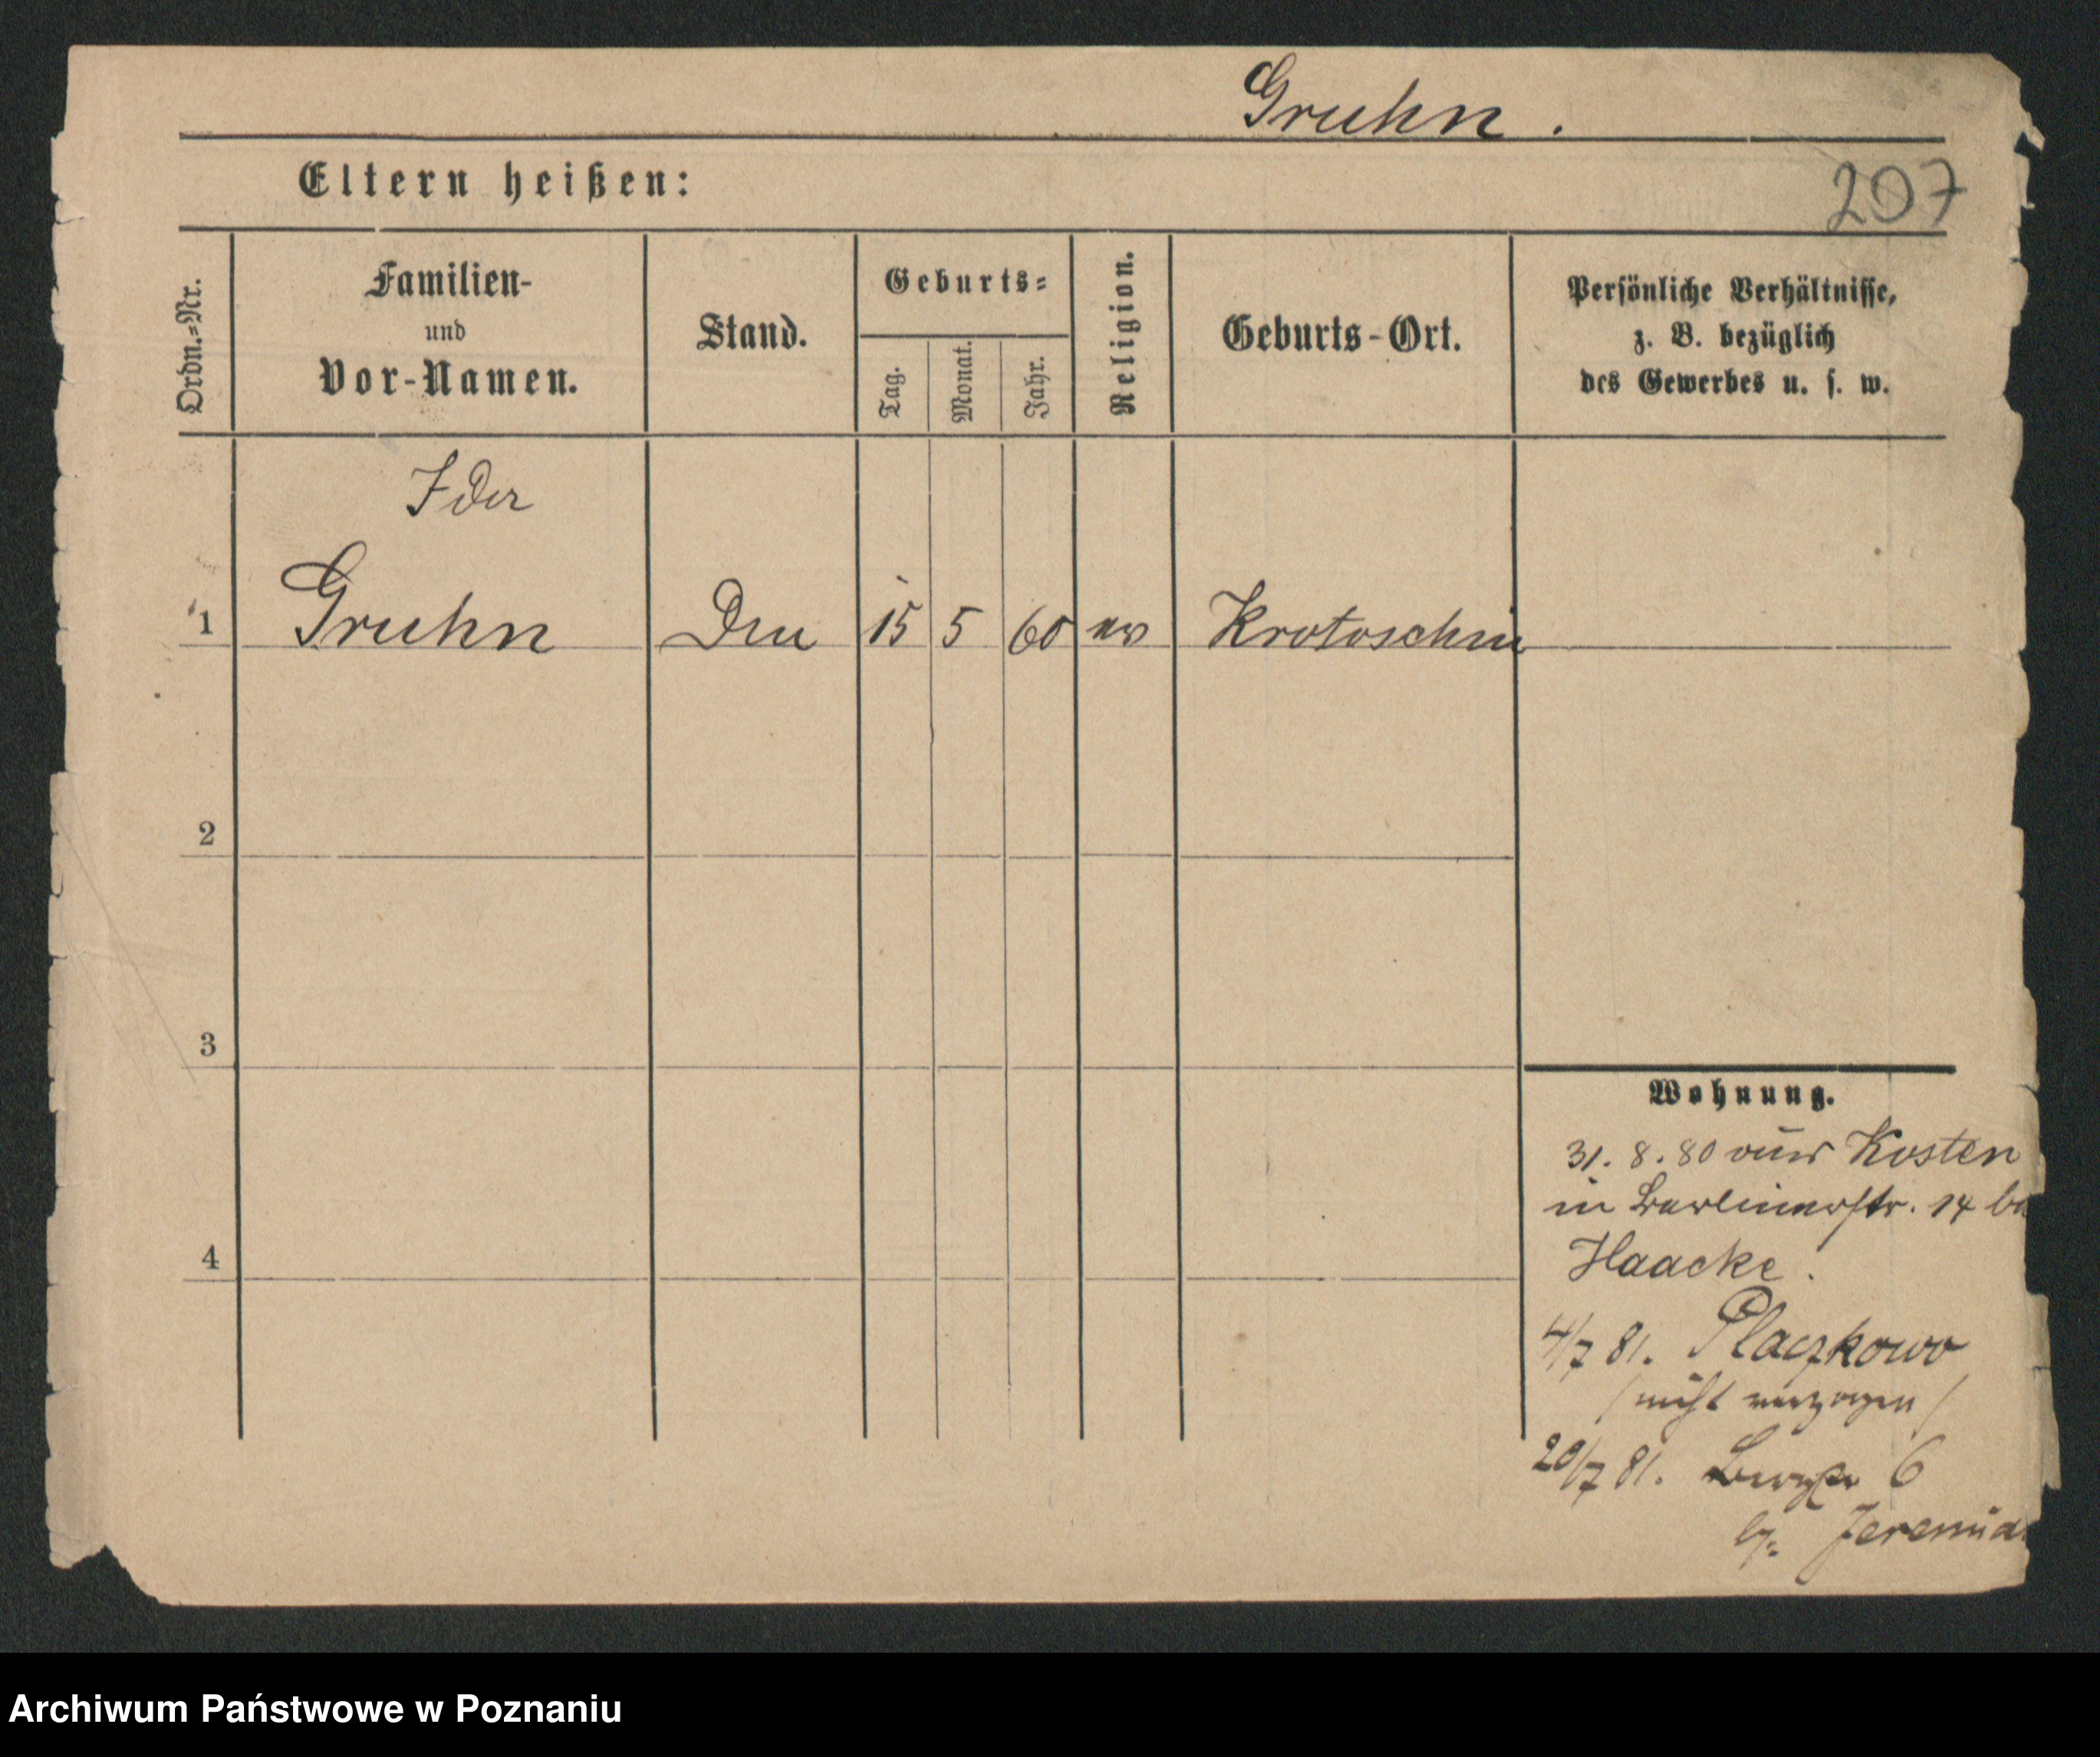 Gruhn.
Eltern heißen:
207
Ordn.=Nr.
Familien-
und
Vor-Namen.
Stand.
Geburts=
Tag.
Monat.
Jahr.
Religion.
Geburts-Ort.
Persönliche Verhältnisse,
z. B. bezüglich
des Gewerbes u. s. w.
Ida
1 Gruhn 15 5 60 ev Krotoschin
2
3
4
Wohnung.
31. 8. 80 aus Kosten
in Berlinerstr. 14 bei
Haacke.
4/7 81. Placzkowo
/ nicht verzogen /
20/7 81. Bergstr 6
b. Jeremias
Archiwum Państwowe w Poznaniu